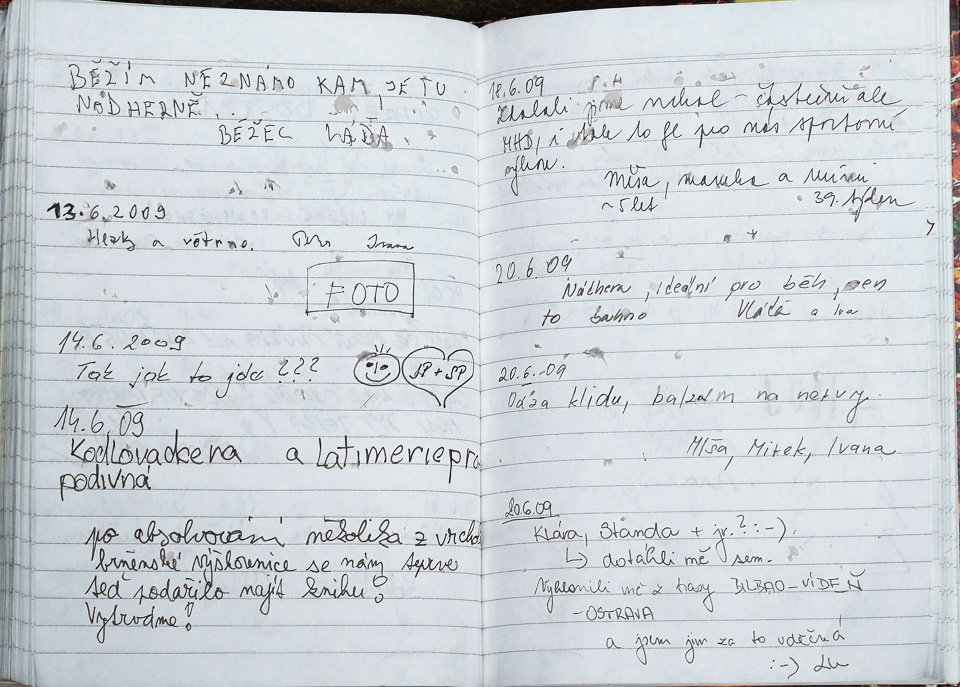 BĚŽÍM NEZNÁMO KAM JE TU
NÁDHERNĚ,..
BĚŽEC LÁĎA.
13.6.2009
Hezky a větrno. Ivana
FOTO
14.6.2009
Tak jak to jde ???
JP + JP
14.6.09
Kodlovadbera a Latimeriepra
podivná
po absolvování několika z vrcholů
brněnské výšlovnice se nám teprve
teď podařilo najít knihu!
Vytrvdme!
18.6.09
jsme – částečně ale
MHD, i to je pro nás sportovní
výkon.
Míša, a Mimi
~5let 39. týden
20.6.09
Nádhera, ideální pro běh, jen
to bahno Vláďa a Iva
20.6.09
Oáza klidu, balzám na nervy.
Míša, Mirek, Ivana
20.6.09
Klára, Standa + jr.? :-).
↳ dotáhli mě sem.
Vyklonili mě z trasy BILBAO–VÍDEŇ
–OSTRAVA
a jsem jim za to vděčná
:-)